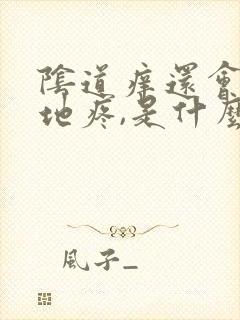 陰道痒還會
地疼,是什麼
風子_